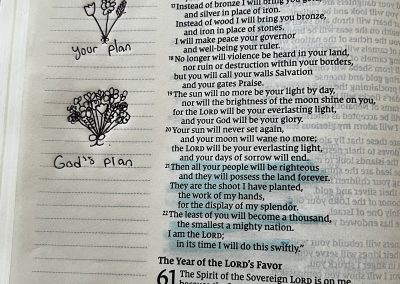 your plan
God's plan
17 Instead of bronze I will bring you
and silver in place of iron.
Instead of wood I will bring you bronze,
and iron in place of stones.
I will make peace your governor
and well-being your ruler.
18 No longer will violence be heard in your land,
nor ruin or destruction within your borders,
but you will call your walls Salvation
and your gates Praise.
19 The sun will no more be your light by day,
nor will the brightness of the moon shine on you,
for the LORD will be your everlasting light,
and your God will be your glory.
20 Your sun will never set again,
and your moon will wane no more;
the LORD will be your everlasting light,
and your days of sorrow will end.
21 Then all your people will be righteous
and they will possess the land forever.
They are the shoot I have planted,
the work of my hands,
for the display of my splendor.
22 The least of you will become a thousand,
the smallest a mighty nation.
I am the LORD;
in its time I will do this swiftly."
The Year of the LORD's Favor
61 The Spirit of the Sovereign LORD is on me,